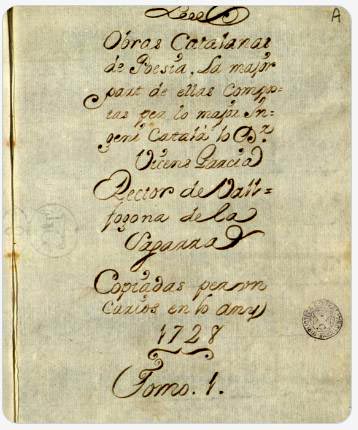 A
Obras Catalanas
de Poesia. La major
part de ellas Compo-
tas per lo major In-
geni Catalá lo Dr.
Vicens Garcia
Rector de Vall-
fogona de la
Copiadas per un
Curiós en lo any
1728
Tomo. 1.